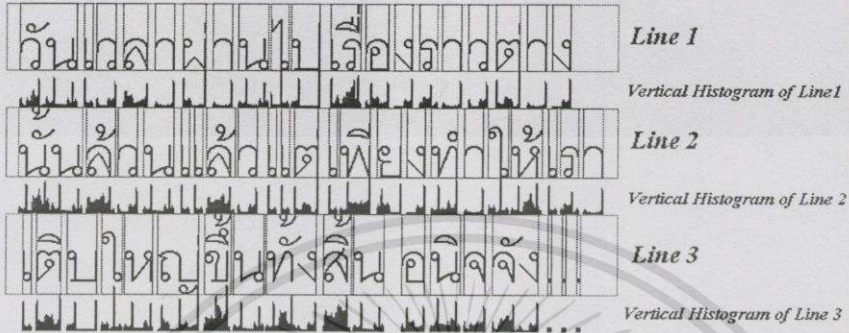 วันเวลาผ่านไป เรื่องราวต่าง Line 1
Vertical Histogram of Line1
นั้นล้วนแล้วแต่เพียงทำให้เรา Line 2
Vertical Histogram of Line 2
เติบใหญ่ขึ้นทั้งสิ้น อนิจจัง... Line 3
Vertical Histogram of Line 3